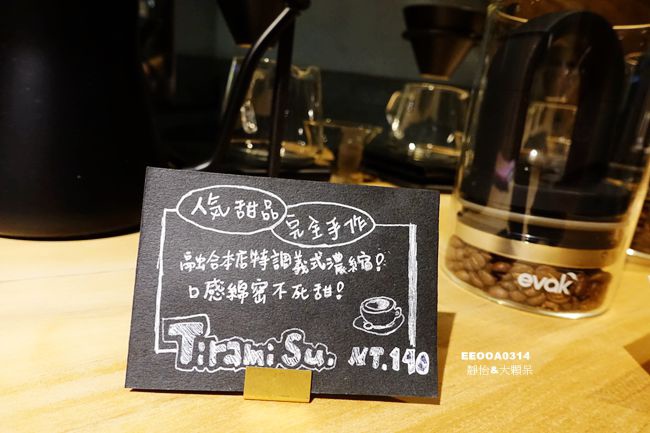 人氣甜品
完全手作
融合本店特調義式濃縮!
口感綿密不死甜!
TiramiSu. NT.140
evak
EEOOA0314
靜怡&大顆呆